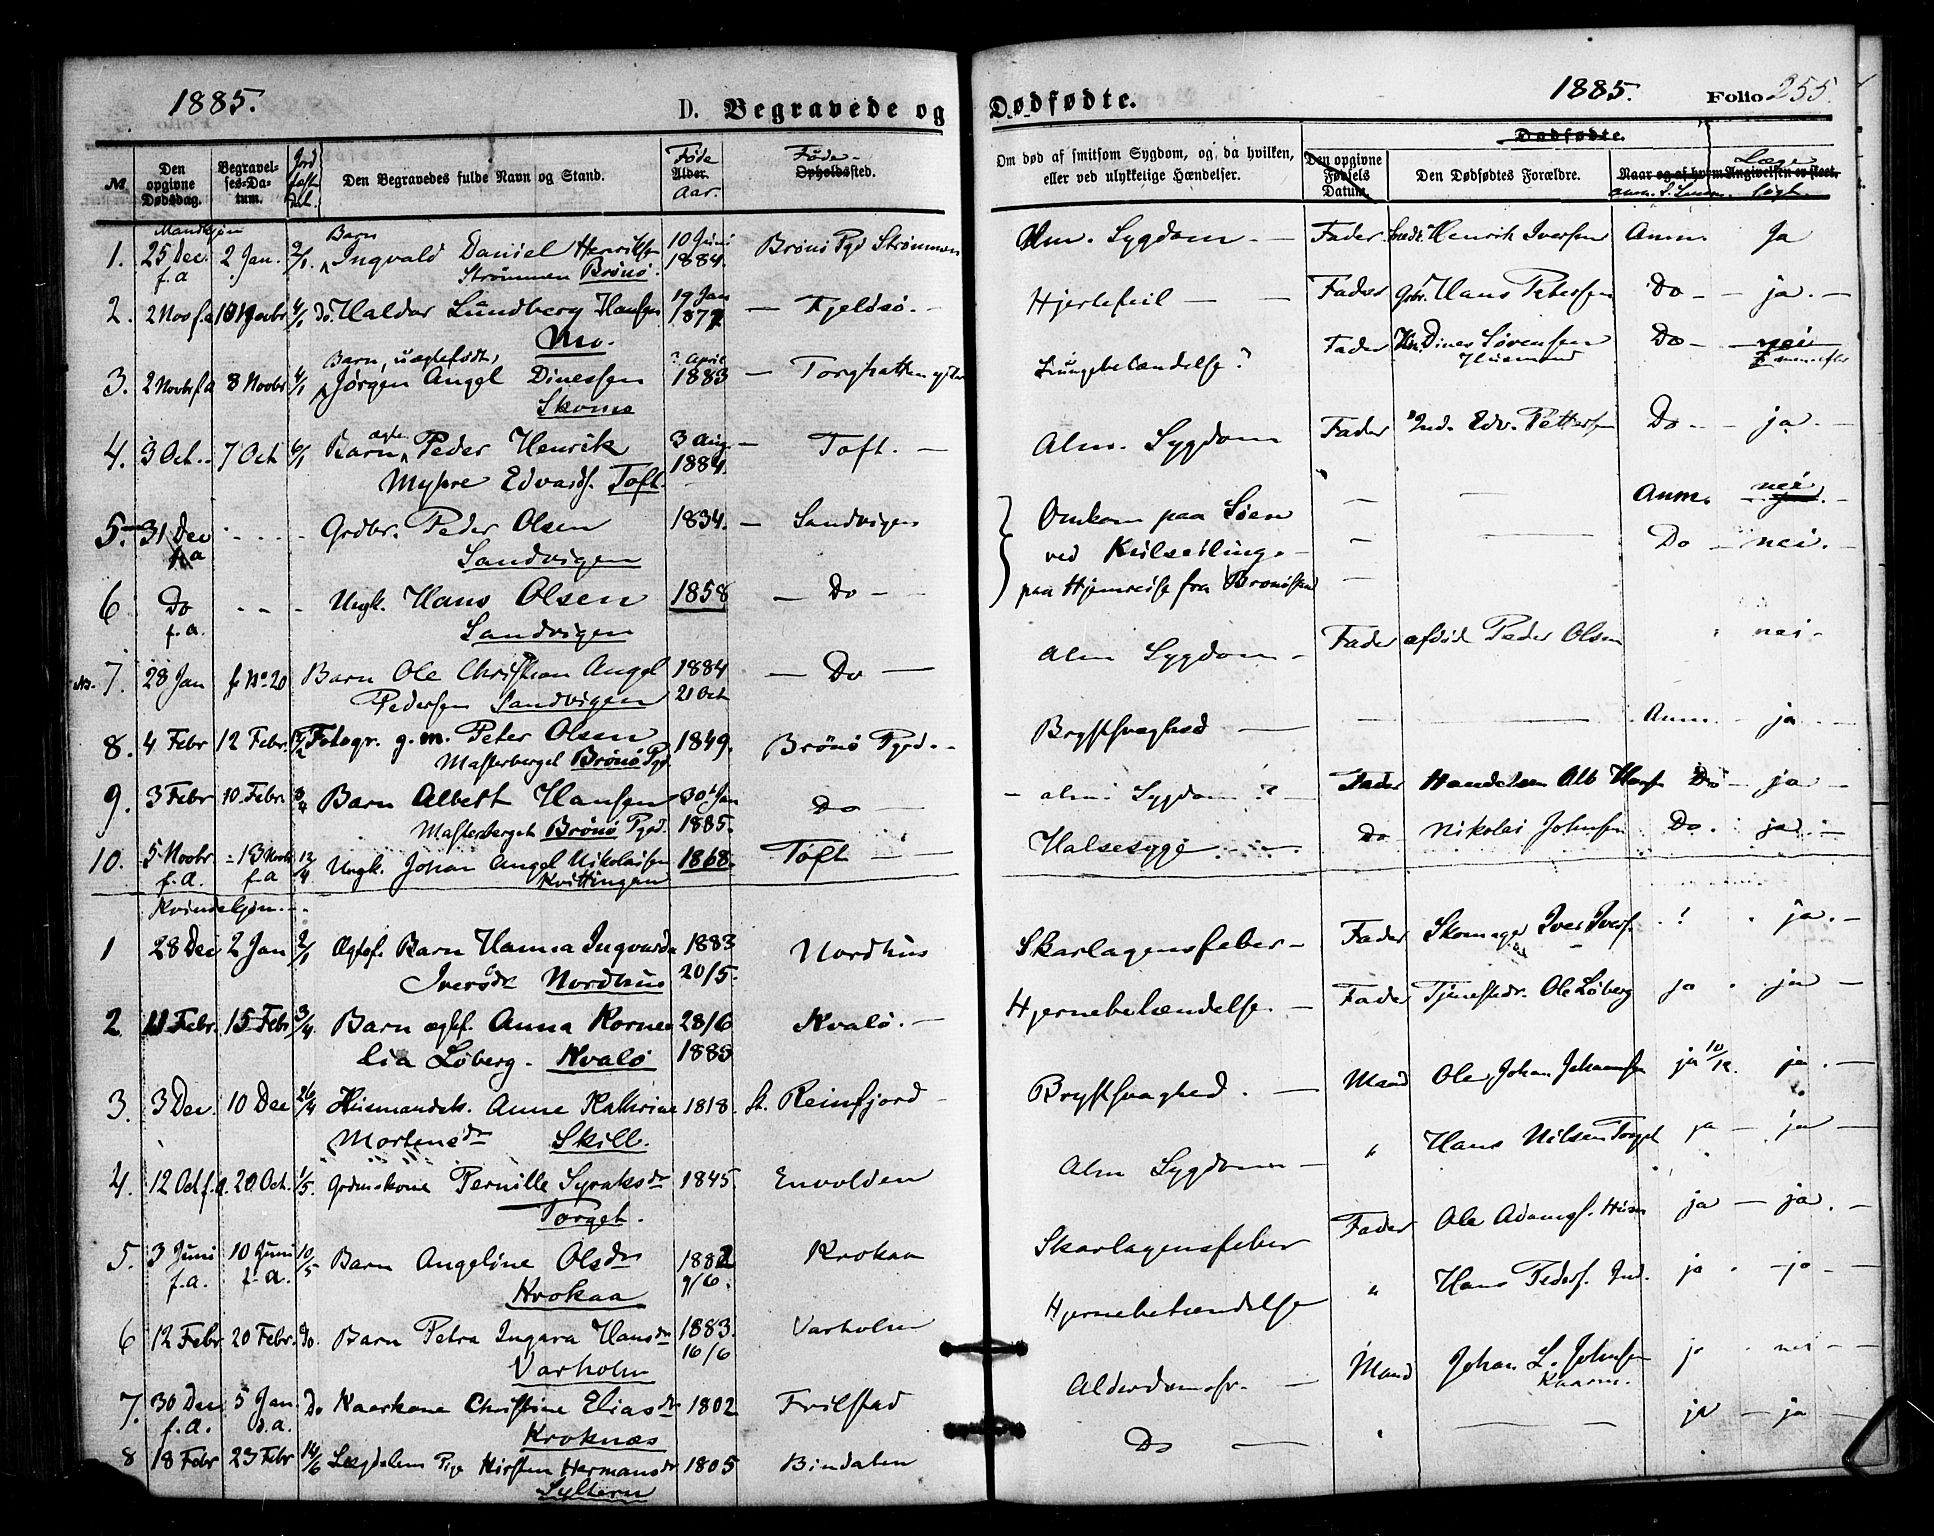 1885.
D. Begravede og
Dødfødte.
1885.
Folio 255.
№
Den opgivne Dødsdag.
Begravelses-Datum.
Jordfæstn.
Den Begravedes fulde Navn og Stand.
Føde Alder. Aar.
Føde- Opholdssted.
Om død af smitsom Sygdom, og da hvilken, eller ved ulykkelige Hændelser.
Den opgivne Fødsels Datum.
Dødfødte.
Den Dødfødtes Forældre.
Naar og af hvem Angivelsen er skeet.
Læge søgt.
Mandkjøn
1. 25 Dec. f.a 2 Jan. 2/1. Barn Ingvald Daniel Henriksen 10 Juni 1884. Brønø Pgd Strømmen Alm. Sygdom. — Fader Henrik Iversen Anm. Ja
Strømmen Brønø.
2. 2 Nov f.a 4/1 Do. Haldor Lundberg Hansen 19 Jan — Fjeldsø. — Hjertefeil — — Fader Gbr. Hans Petersen Do — — ja. —
Mo.
3. 2 Novbr f.a 8 Novbr 4/1 Barn, uægtefødt, Jørgen Angel Dinessen ? April 1883 — Torghatten Lungebetændelse? Fader Dines Sørensen Husmand Do — nei
Skomo
4. 3 Oct. 7 Oct 6/1 Barn ægte Peder Henrik 3 Aug 1884. — Toft. — Alm. Sygdom Fader Ind. Edv. Pettersen Do — — ja. —
Myhre Edvards. Toft.
5. 31 Dec f.a Grdbr. Peder Olsen 1834. — Sandvigen Omkom paa Søen — — Anm. nei
Sandvigen ved Kulseiling. — — Do — nei. —
6 Do f.a. Ungk. Hans Olsen 1858 — Do — — paa Hjemreise fra Brønøsund —
Sandvigen
7. 28 Jan f No 20 Barn Ole Christian Angel 1884 21 Oct — Do — Alm Sygdom — Fader afdøde Peder Olsen nei —
Pedersen Sandvigen
8. 4 Febr 12 Febr. Fotogr. g.m. Peter Olsen 1849. Brönö Pgd. — Brystsvaghed — — — Anm. — ja —
Masterberget Brönö Pgd.
9. 3 Febr 10. Febr. Barn Albert Hansen 30 Jan 1885. Do — — alm. Sygdom ? — Fader Handelsm Alb Hans Do — ja —
Masterberget Brönö Pgd.
10. 5 Novbr. f.a. 13 Novbr f.a 12/4 Ungk. Johan Angel Nikolaisen 1868. Toft — Halsesyge — Do Nikolai Johnsen Do. ja. —
Kvittingen
Kvindekjøn. —
1 28 Dec 2 Jan 2/1 Ægtef. Barn Hanna Ingvarda 1883 20/5. Nordhus Skarlagensfeber — Fader Skomager Iver Ivers. ? ja. —
Iversdr Nordhus
2 11 Febr. 15 Febr 3/4 Barn ægtef. Anna Korne 28/6 1885 Kvalö. — Hjernebetændelse — Fader Tjenestedr. Ole Löberg ja ja —
lia Löberg. Kvalö
3. 3 Dec. 10 Dec 26/4 Husmandsk. Anne Kathrine 1818. Reinfjord — Brystsvaghed. — Mand Ole Johan Johannsen ja 10/12. ja. —
Mortensdr Skill.
4. 12 Oct f.a. 20 Oct. 1/5. Grdmskone Pernille Syraksdr 1845 Envolden Alm Sygdom — " Hans Nilsen Torget ja — ja —
Torget.
5. 3 Juni f.a. 10 Juni f.a. 10/5 Barn Angeline Olsdr 1882 9/6. Krokaa Skarlagensfeber Fader Ole Adamsf. Husm ja — ja. —
Krokaa
6 12 Febr 20 Febr. Do. Barn Petra Ingara Hansdr 1883. 16/6 Varholm Hjernebetændelse " Hans Peders. Ind. ja — ja. —
Varholm
7. 30 Dec f.a. 5 Jan d.a. Do Kaarkone Christine Eliasdr 1802 Frilstad Alderdomssv. — Mand Johan L. Johnsen Kaarm. ja nei — —
Kroknæs
8 18 Febr 23 Febr 14/6 Lægdslem Pige Kirsten Hermansdr 1805 Bindalen Do — " — — ja — ja —
Sylteren